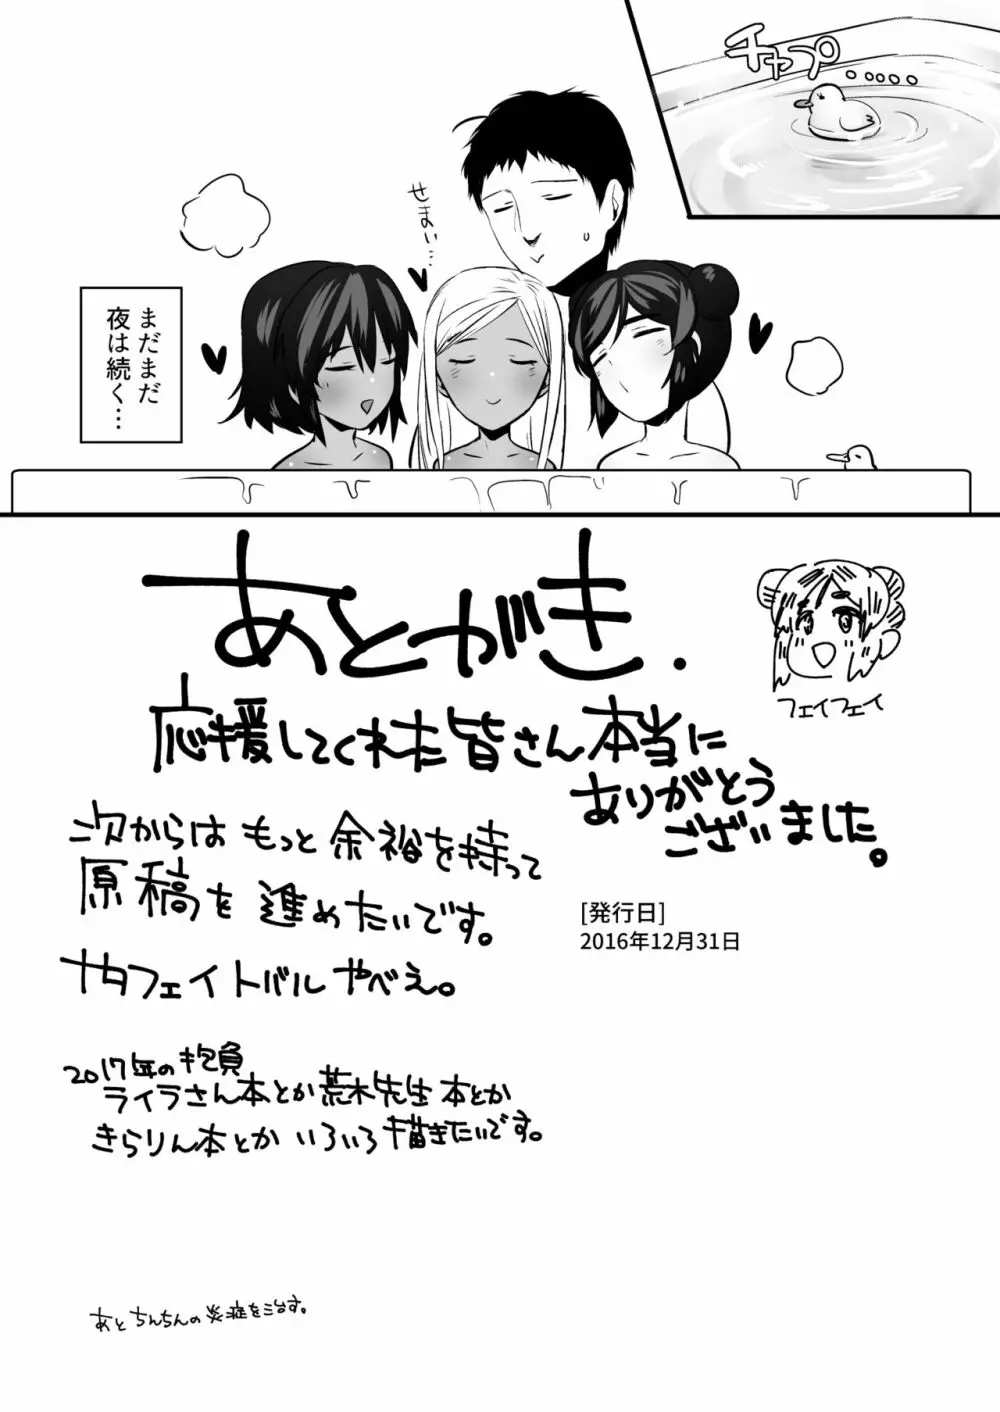 チャプ
せまい…
まだまだ
夜は続く…
あとがき.
フェイフェイ
応援してくれた皆さん本当に
ありがとう
ございました。
次からは もっと 余裕を持って
原稿を 進めたいです。
ナタフェイトバル やべえ。
[発行日]
2016年12月31日
2017年の抱負
ライラさん本とか荒木先生 本とか
きらりん本とか いろいろ 描きたいです。
あと ちんちんの 炎症を治す。